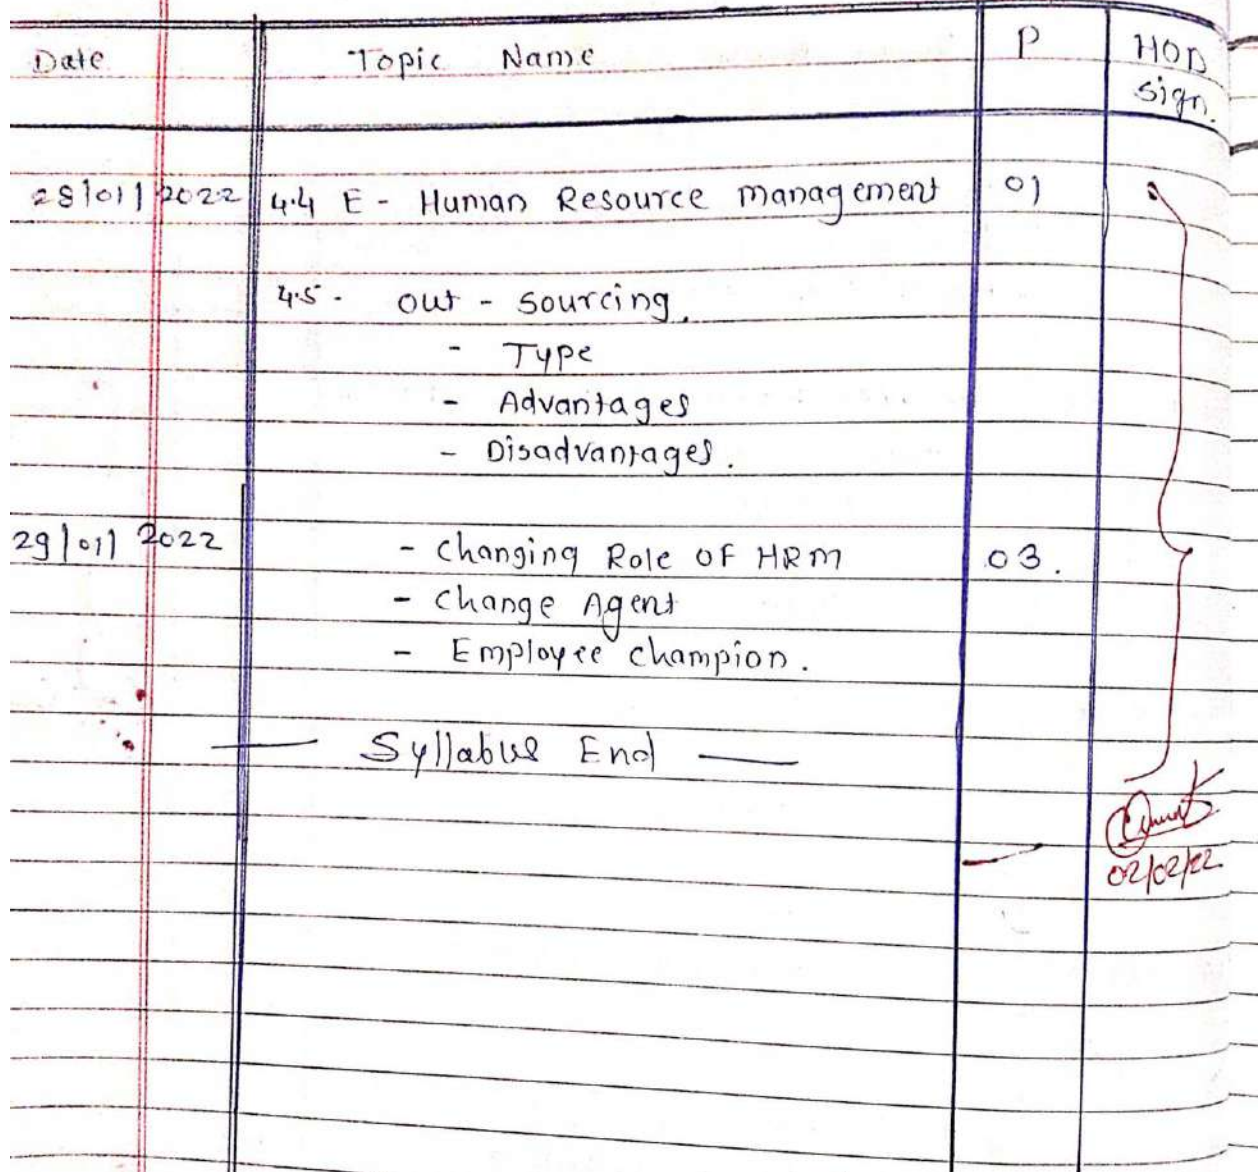 Date Topic Name P HOD
sign.
28/01/2022 4.4 E - Human Resource management 01
4.5 - out - sourcing.
- Type
- Advantages
- Disadvantages.
29/01/2022 - Changing Role OF HRM 03.
- Change Agent
- Employee champion.
— Syllabus End —
02/02/22